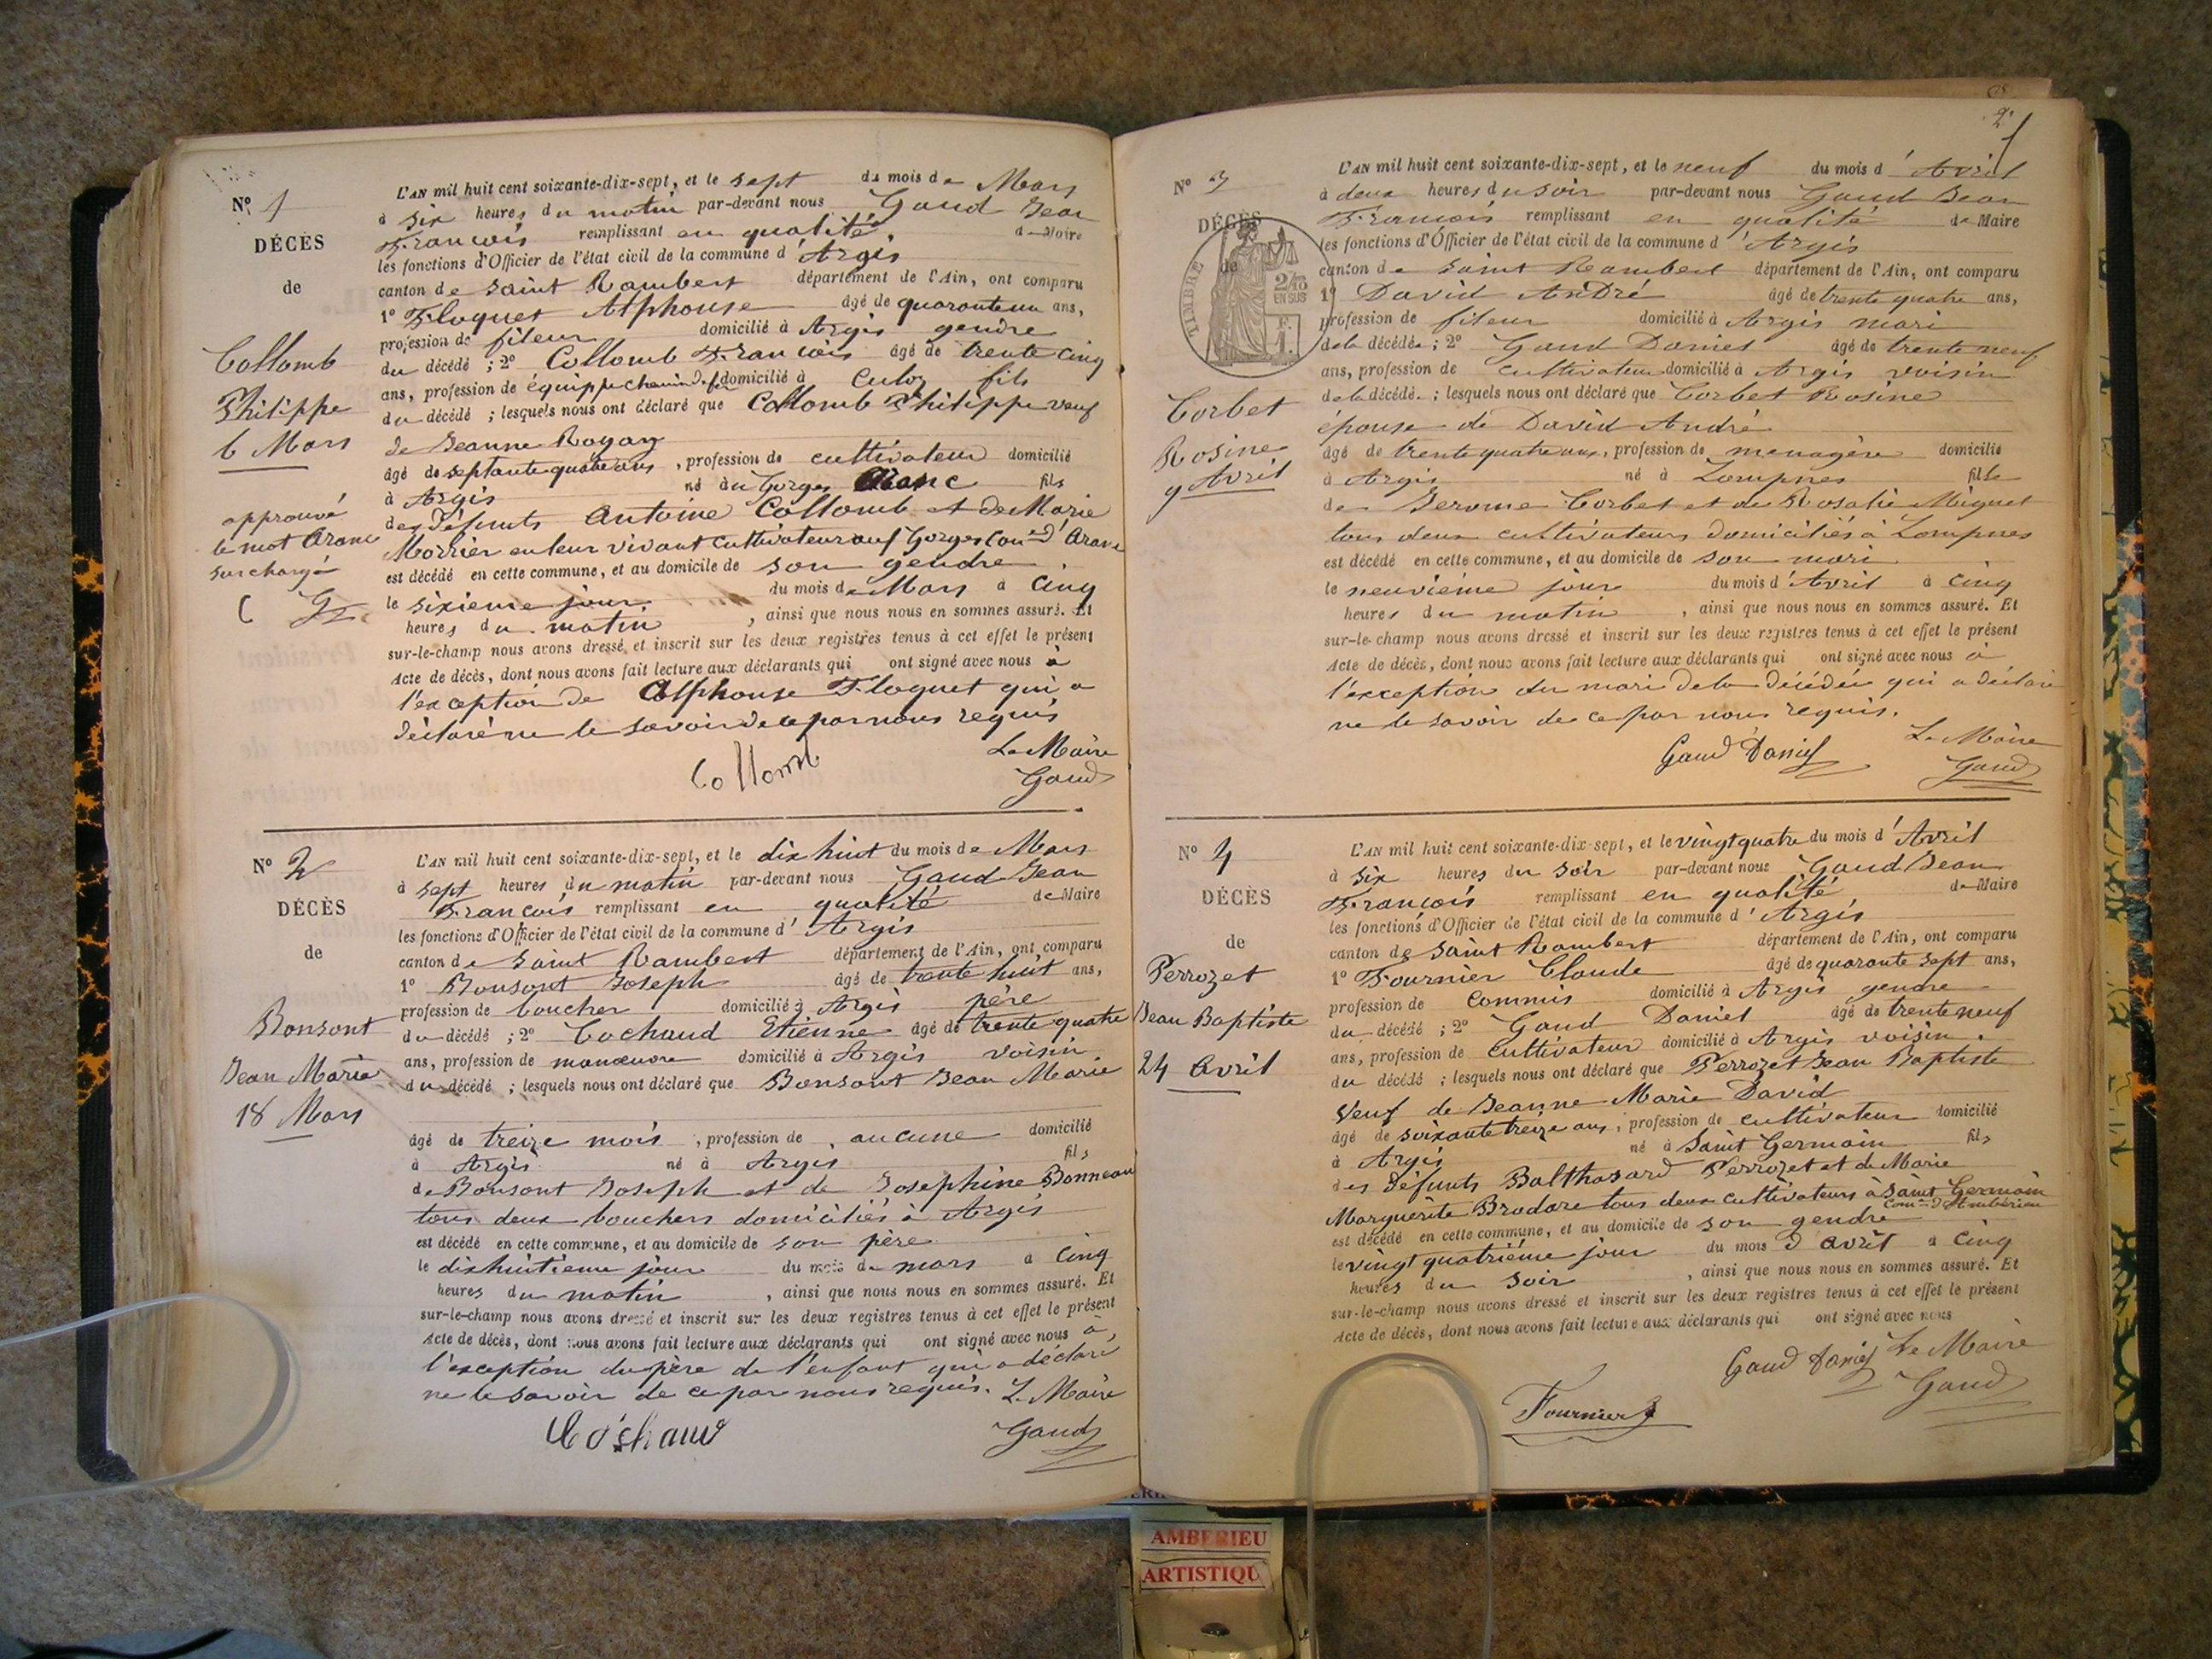 Nº 1
DÉCÈS
de
Collomb
Philippe
6 Mars
approuvé
le mot Aranc
surchargé
C G
L'AN mil huit cent soixante-dix-sept, et le sept du mois de Mars
à six heures du matin par-devant nous Gaud Jean
François remplissant en qualité de Maire
les fonctions d'Officier de l'état civil de la commune d'Argis
canton de Saint Rambert département de l'Ain, ont comparu
1º Floquet Alphonse âgé de quarante un ans,
profession de fileur domicilié à Argis gendre
du décédé ; 2º Collomb François âgé de trente cinq
ans, profession de équippe chemin de fer domicilié à Culoz fils
du décédé ; lesquels nous ont déclaré que Collomb Philippe veuf
de Jeanne Rogay
âgé de septante quatre ans, profession de cultivateur domicilié
à Argis né à Gorges Aranc fils
des défunts Antoine Collomb et de Marie
Morrier en leur vivant cultivateurs aux Gorges Cne d'Aranc
est décédé en cette commune, et au domicile de son gendre
le sixième jour du mois de Mars à cinq
heures du matin, ainsi que nous nous en sommes assuré. Et
sur-le-champ nous avons dressé et inscrit sur les deux registres tenus à cet effet le présent
Acte de décès, dont nous avons fait lecture aux déclarants qui ont signé avec nous à
l'exception de Alphonse Floquet qui a
déclaré ne le savoir de ce par nous requis
Collomb
Le Maire
Gaud
Nº 2
DÉCÈS
de
Bonsont
Jean Marie
18 Mars
L'AN mil huit cent soixante-dix-sept, et le dix huit du mois de Mars
à sept heures du matin par-devant nous Gaud Jean
François remplissant en qualité de Maire
les fonctions d'Officier de l'état civil de la commune d'Argis
canton de Saint Rambert département de l'Ain, ont comparu
1º Bonsont Joseph âgé de trente huit ans,
profession de boucher domicilié à Argis père
du décédé ; 2º Cochaud Etienne âgé de trente quatre
ans, profession de manœuvre domicilié à Argis voisin
du décédé ; lesquels nous ont déclaré que Bonsont Jean Marie
âgé de treize mois, profession de aucune domicilié
à Argis né à Argis fils
de Bonsont Joseph et de Josephine Bonneau
tous deux bouchers domiciliés à Argis
est décédé en cette commune, et au domicile de son père
le dix huitième jour du mois de mars à cinq
heures du matin, ainsi que nous nous en sommes assuré. Et
sur-le-champ nous avons dressé et inscrit sur les deux registres tenus à cet effet le présent
Acte de décès, dont nous avons fait lecture aux déclarants qui ont signé avec nous à
l'exception du père de l'enfant qui a déclaré
ne le savoir de ce par nous requis. Le Maire
Cochaud
Gaud
2
Nº 3
DÉCÈS
de
TIMBRE
2/10
EN SUS
Corbet
Rosine
9 Avril
L'AN mil huit cent soixante-dix-sept, et le neuf du mois d'Avril
à deux heures du soir par-devant nous Gaud Jean
François remplissant en qualité de Maire
les fonctions d'Officier de l'état civil de la commune d'Argis
canton de Saint Rambert département de l'Ain, ont comparu
1º David André âgé de trente quatre ans,
profession de fileur domicilié à Argis mari
de la décédée ; 2º Gaud Daniel âgé de trente neuf
ans, profession de cultivateur domicilié à Argis voisin
de la décédée ; lesquels nous ont déclaré que Corbet Rosine
épouse de David André
âgé de trente quatre ans, profession de menagère domicilié
à Argis né à Lompnes fille
de Jerome Corbet et de Rosalie Miguet
tous deux cultivateurs domiciliés à Lompnes
est décédé en cette commune, et au domicile de son mari
le neuvième jour du mois d'Avril à cinq
heures du matin, ainsi que nous nous en sommes assuré. Et
sur-le-champ nous avons dressé et inscrit sur les deux registres tenus à cet effet le présent
Acte de décès, dont nous avons fait lecture aux déclarants qui ont signé avec nous à
l'exception du mari de la décédée qui a déclaré
ne le savoir de ce par nous requis.
Gaud Daniel
Le Maire
Gaud
Nº 4
DÉCÈS
de
Perrozet
Jean Baptiste
24 Avril
L'AN mil huit cent soixante-dix-sept, et le vingt quatre du mois d'Avril
à six heures du soir par-devant nous Gaud Jean
François remplissant en qualité de Maire
les fonctions d'Officier de l'état civil de la commune d'Argis
canton de Saint Rambert département de l'Ain, ont comparu
1º Fournier Claude âgé de quarante sept ans,
profession de commis domicilié à Argis gendre
du décédé ; 2º Gaud Daniel âgé de trente neuf
ans, profession de cultivateur domicilié à Argis voisin.
du décédé ; lesquels nous ont déclaré que Perrozet Jean Baptiste
Veuf de Jeanne Marie David
âgé de soixante treize ans, profession de cultivateur domicilié
à Argis né à Saint Germain fils
des défunts Balthasard Perrozet et de Marie
Marguerite Brodare tous deux cultivateurs à Saint Germain
Comne d'Ambérieu
est décédé en cette commune, et au domicile de son gendre
le vingt quatrième jour du mois d'avril à cinq
heures du soir, ainsi que nous nous en sommes assuré. Et
sur-le-champ nous avons dressé et inscrit sur les deux registres tenus à cet effet le présent
Acte de décès, dont nous avons fait lecture aux déclarants qui ont signé avec nous
Gaud Daniel Le Maire
Fournier
Gaud
AMBERIEU
ARTISTIQU